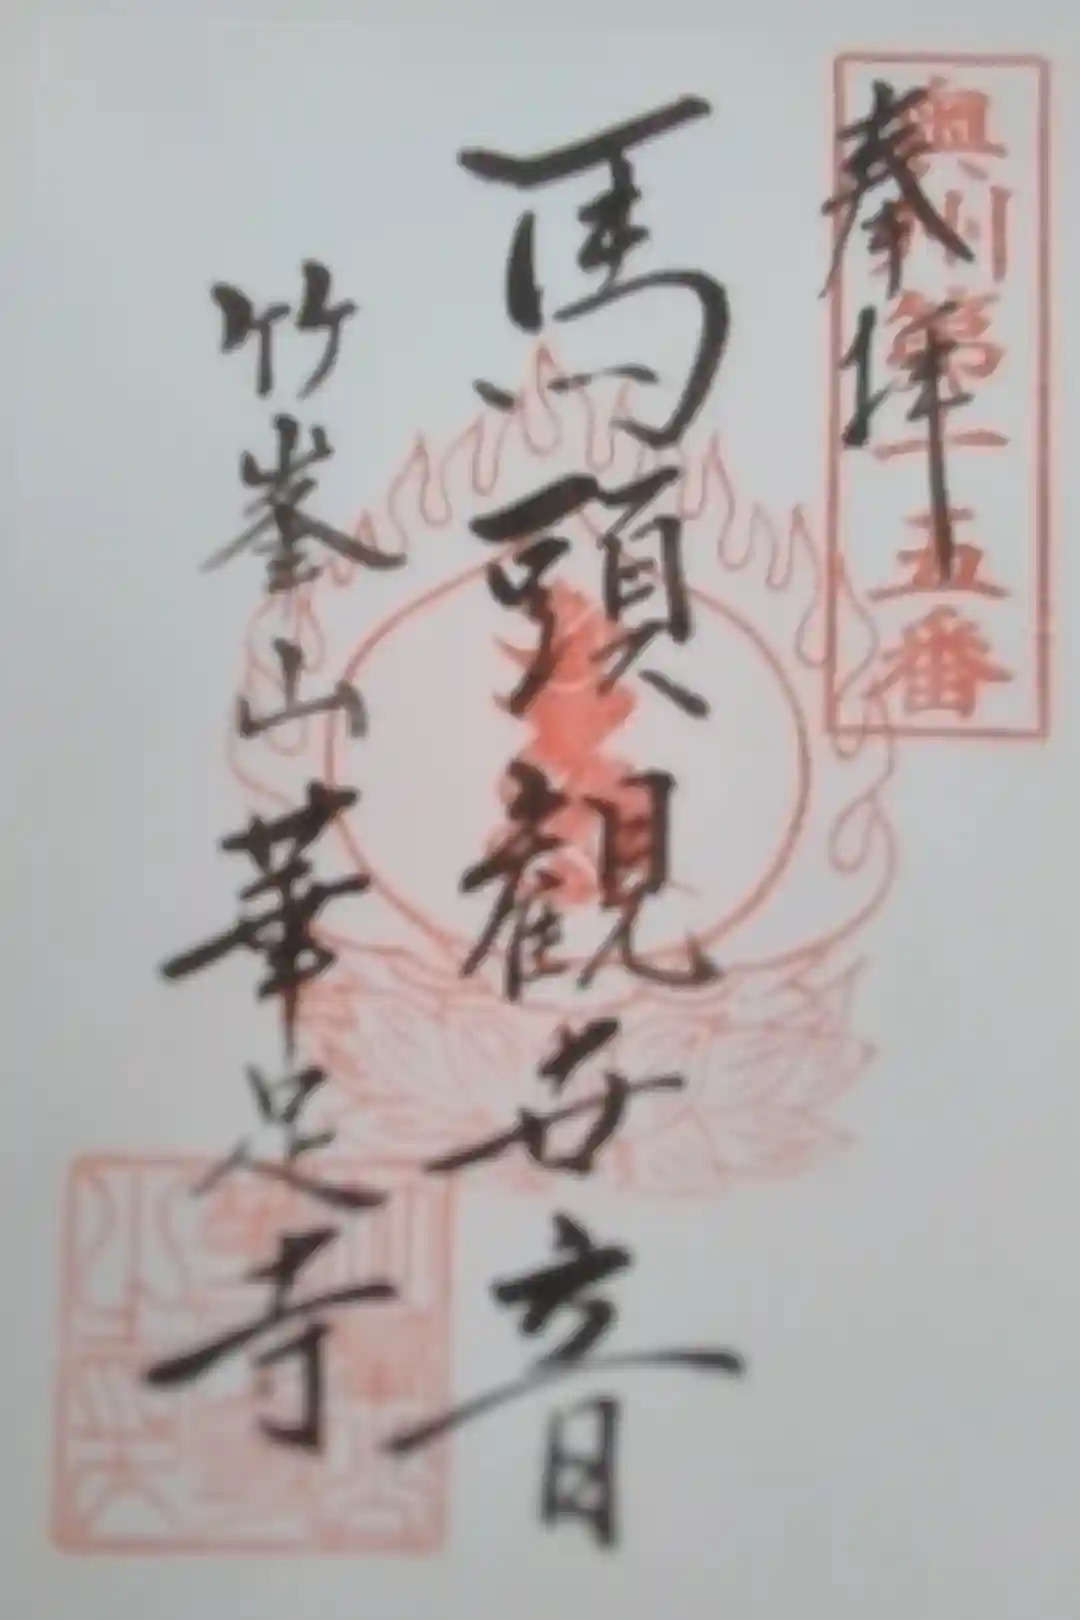 奥州第十五番
奉拝
馬頭観世音
竹峯山華足寺